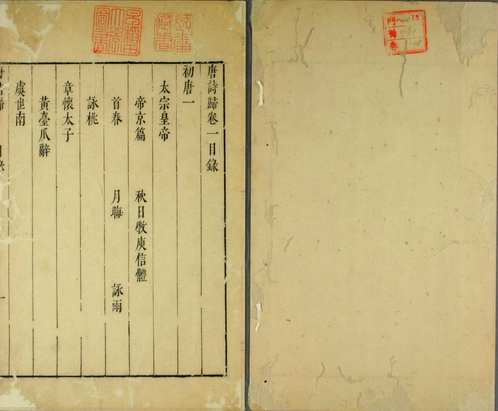 唐詩歸卷一目錄
初唐一
太宗皇帝
帝京篇 秋日斆庾信體
首春 月晦 詠雨
詠桃
章懷太子
黃臺瓜辭
虞世南